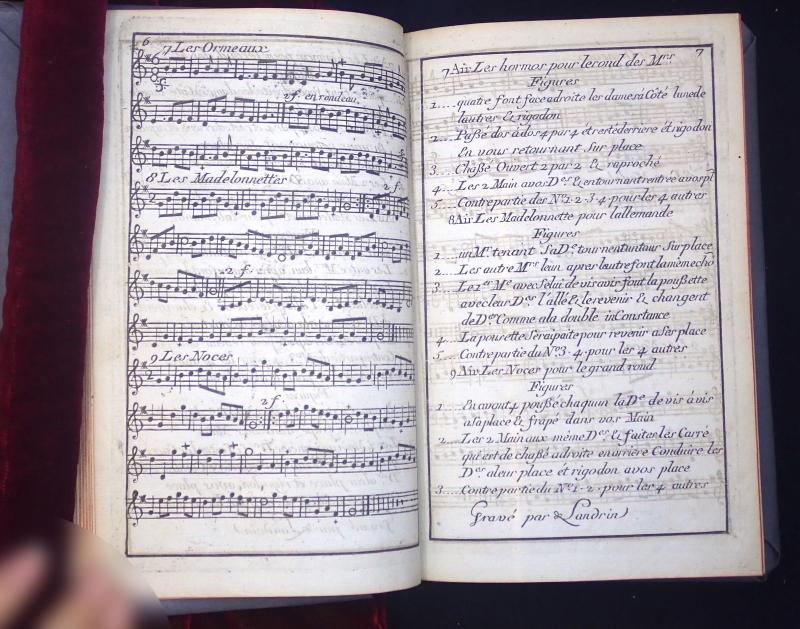 6
7 Les Ormeaux
2f. en rondeau.
8 Les Madelonnettes
2 f.
2 f.
9 Les Noces
2 f.
7
7 Air Les hormos pour le rond des Mrs
Figures
1.... quatre font face adroite les dames a Côté lunede
lautres & rigodon
2.... Paße dos à dos 4 par 4 ét resté derriere ét rigodon
En vous retournant Sur place
3.... Chaße Ouvert 2 par 2 & raproché
4.... Les 2 Main avos Des & en tournant rentrée avos pl
5.... Contrepartie des No 1. 2. 3. 4. pour les 4 autres
8 Air Les Madelonnette pour lallemande
Figures
1.... un Mr tenant Sa De tournent un tour Sur place
2.... Les autre Mrs lein apres lautre font la meme cho
3.... Le 1er Mr avec Selui de vis avis font la poußette
avec leur Des l'allé & le revenir & changent
de De Comme ala double inConstance
4.... La pousette Sera paite pour revenir a Ses place
5.... Contre partie du No 3. 4. pour les 4 autres
9 Air Les Noces pour le grand rond
Figures
1.... En avont 4 poußé chaquin la De de vis á vis
a Sa place & frapé dans vos Main
2.... Les 2 Main aux même Des & faites les Carré
qui est de chaßé adroite en arriere Conduire les
Des a leur place ét rigodon avos place
3.... Contre partie du No 1. 2. pour les 4 autres
Gravé par Landrin